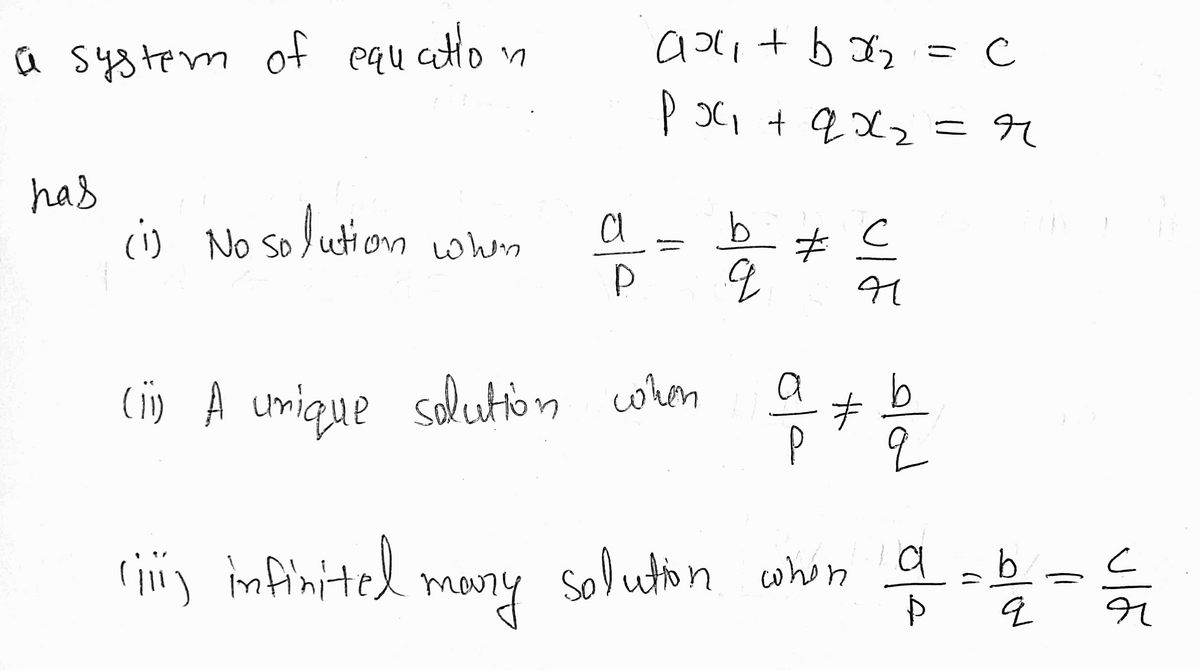 a system of equation ax₁ + bx₂ = c
px₁ + qx₂ = r
has
(i) No solution when a/p = b/q ≠ c/r
(ii) A unique solution when a/p ≠ b/q
(iii) infinitel many solution when a/p = b/q = c/r